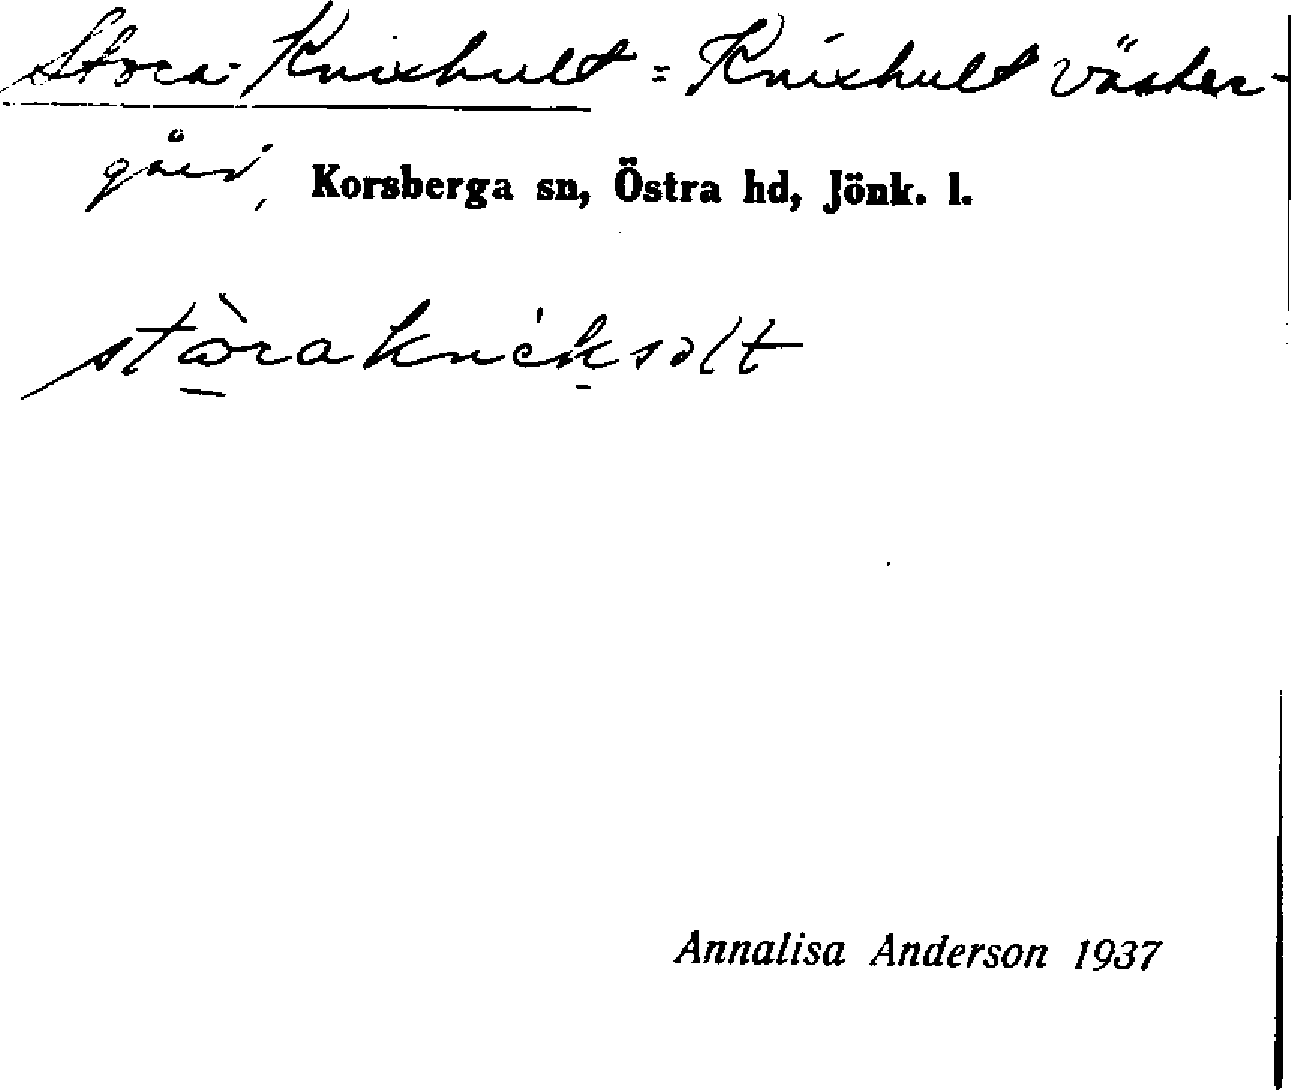 Stora Knixhult = Knixhult Väster-
gård, Korsberga sn, Östra hd, Jönk. l.
stòraknéksolt
Annalisa Anderson 1937